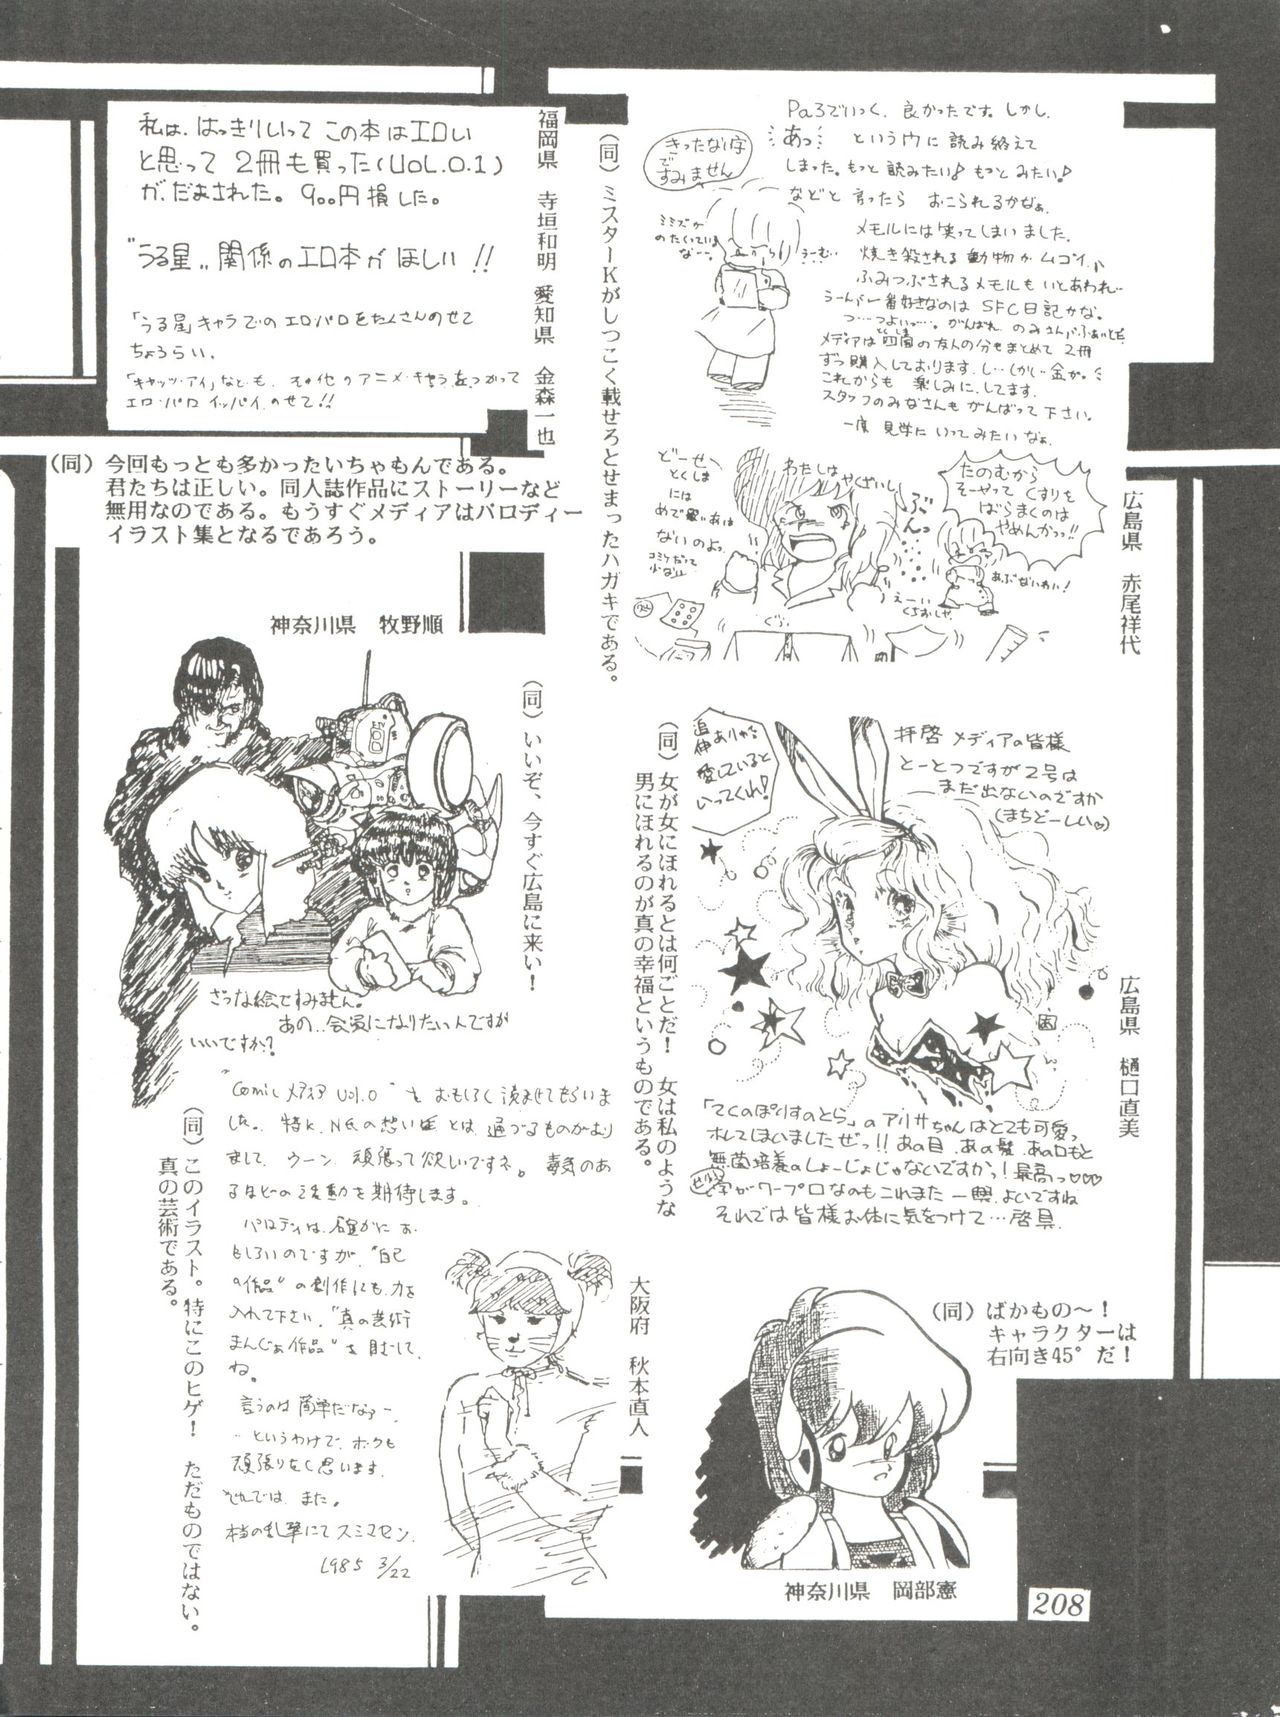 Pa3でいっく、良かったです。しかし、
あっ という内に読み終えて
しまった。もっと読みたい♪もっとみたい♪
などと言ったら おこられるかなぁ、
メモルには笑ってしまいました。
焼き殺される動物がムゴイ、
ふみつぶされるメモルもいとあわれ…
うーんバー番好きなのは SFC日記かな。
メディアは四国の友人の分もまとめて 2冊
ずつ購入しております。し…くしい金が。
これからも 楽しみに、してます。
スタッフのみなさんもがんばって下さい。
一度 見学にいってみたいなぁ、
きったない字
で
すみません
ミミズが
のたくっている
なー。
うーむ…
どーせ
とくしま
には
めで買い者は
ないのよっ
コミケだって
少ないし
わたしは
やくざいし
ぶんっ
たのむから
そーやって くすりを
ばらまくのは
やめんかっっ!!
あぶないわい!
えーい
くちおしや
広島県 赤尾祥代
(同) ミスターKがしつこく載せろとせまったハガキである。
私は、はっきりいって この本はエロい
と思って 2冊も買った(VOL.0.1)
が、だまされた。900円損した。
"うる星" 関係のエロ本がほしい!!
「うる星」キャラでのエロ・パロをたくさんのせて
ちょうらい。
「キャッツ・アイ」なども、その他のアニメ・キャラをつかって
エロ・パロ イッパイ、のせて!!
福岡県 寺垣和明
愛知県 金森一也
(同) 今回もっとも多かったいちゃもんである。
君たちは正しい。同人誌作品にストーリーなど
無用なのである。もうすぐメディアはパロディー
イラスト集となるであろう。
神奈川県 牧野順
(同) いいぞ、今すぐ広島に来い!
ざつな絵ですみません。
あの…会員になりたいんですが
いいですか?
拝啓 メディアの皆様
とーとつですが2号は
まだ出ないのですか
(まちどーしい♡)
追伸
愛していると
いってくれ!
「てくのぽりすのとら」のアリサちゃんはとても可愛っ
ホレてしまいましたぜっ!!あの目、あの髪、あの口もと
無菌培養のしょーじょじゃないですかっ!最高っ♡♡♡
字がワープロなのもこれまた一興、よいですね
それでは皆様お体に気をつけて…啓具
広島県 樋口直美
(同) 女が女にほれるとは何ごとだ! 女は私のような
男にほれるのが真の幸福というものである。
"Comic メディア Vol.0" をおもしろく読ませてもらいま
した。特にK.N氏の想いとは、通づるものがあり
まして、ウーン、頑張って欲しいですネ。毒気のあ
るほどの活動を期待します。
パロディは、確かにお
もしろいのですが、"自己
の作品"の創作にも、力を
入れて下さい。"真の芸術
まんじぁ作品"を目ざして、
ね。
言うのは簡単だなァー、
…というわけで、ボクも
頑張りたく思います。
それでは、また。
本当の乱筆にてスミマセン、
1985 3/22
大阪府 秋本直人
(同) このイラスト。特にこのヒゲ! ただものではない。
真の芸術である。
(同) ばかもの～!
キャラクターは
右向き45°だ!
神奈川県 岡部憲
208